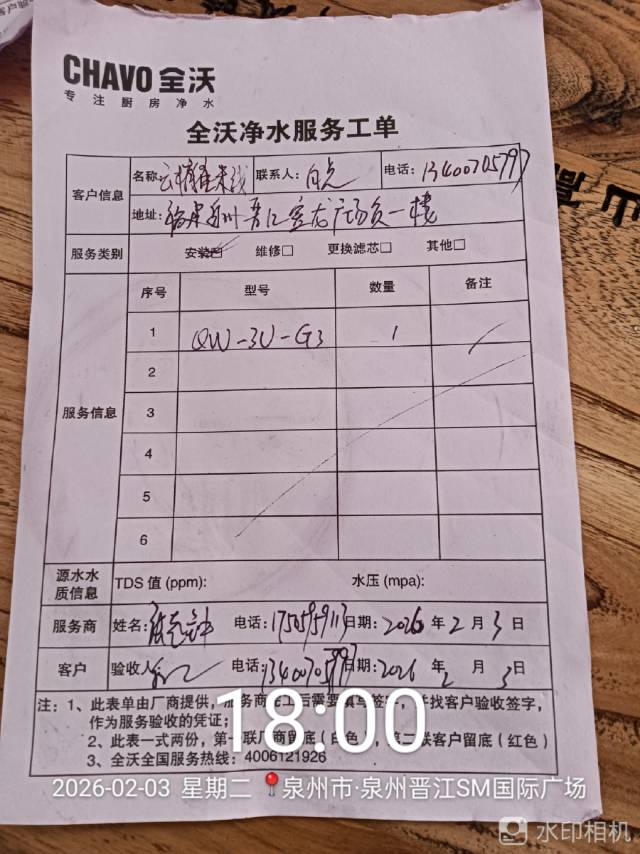 CHAVO 全沃
专注厨房净水
全沃净水服务工单
客户信息 名称: 云 米线 联系人: 电话: 13400705797
地址: 福建泉州晋江宝龙广场负一楼
服务类别 安装 维修□ 更换滤芯□ 其他□
服务信息 序号 型号 数量 备注
1 QW-3U-G3 1
2
3
4
5
6
源水水质信息 TDS 值 (ppm): 水压 (mpa):
服务商 姓名: 电话: 日期: 2026 年 2 月 3 日
客户 验收人 电话: 13400705797 日期: 2026 年 2 月 3 日
注: 1、此表单由厂商提供，服务商完工后需要填写签字，并找客户验收签字，
作为服务验收的凭证;
2、此表一式两份，第一联厂商留底（白色），第二联客户留底（红色）
3、全沃全国服务热线: 4006121926
18:00
2026-02-03 星期二 泉州市·泉州晋江SM国际广场
水印相机